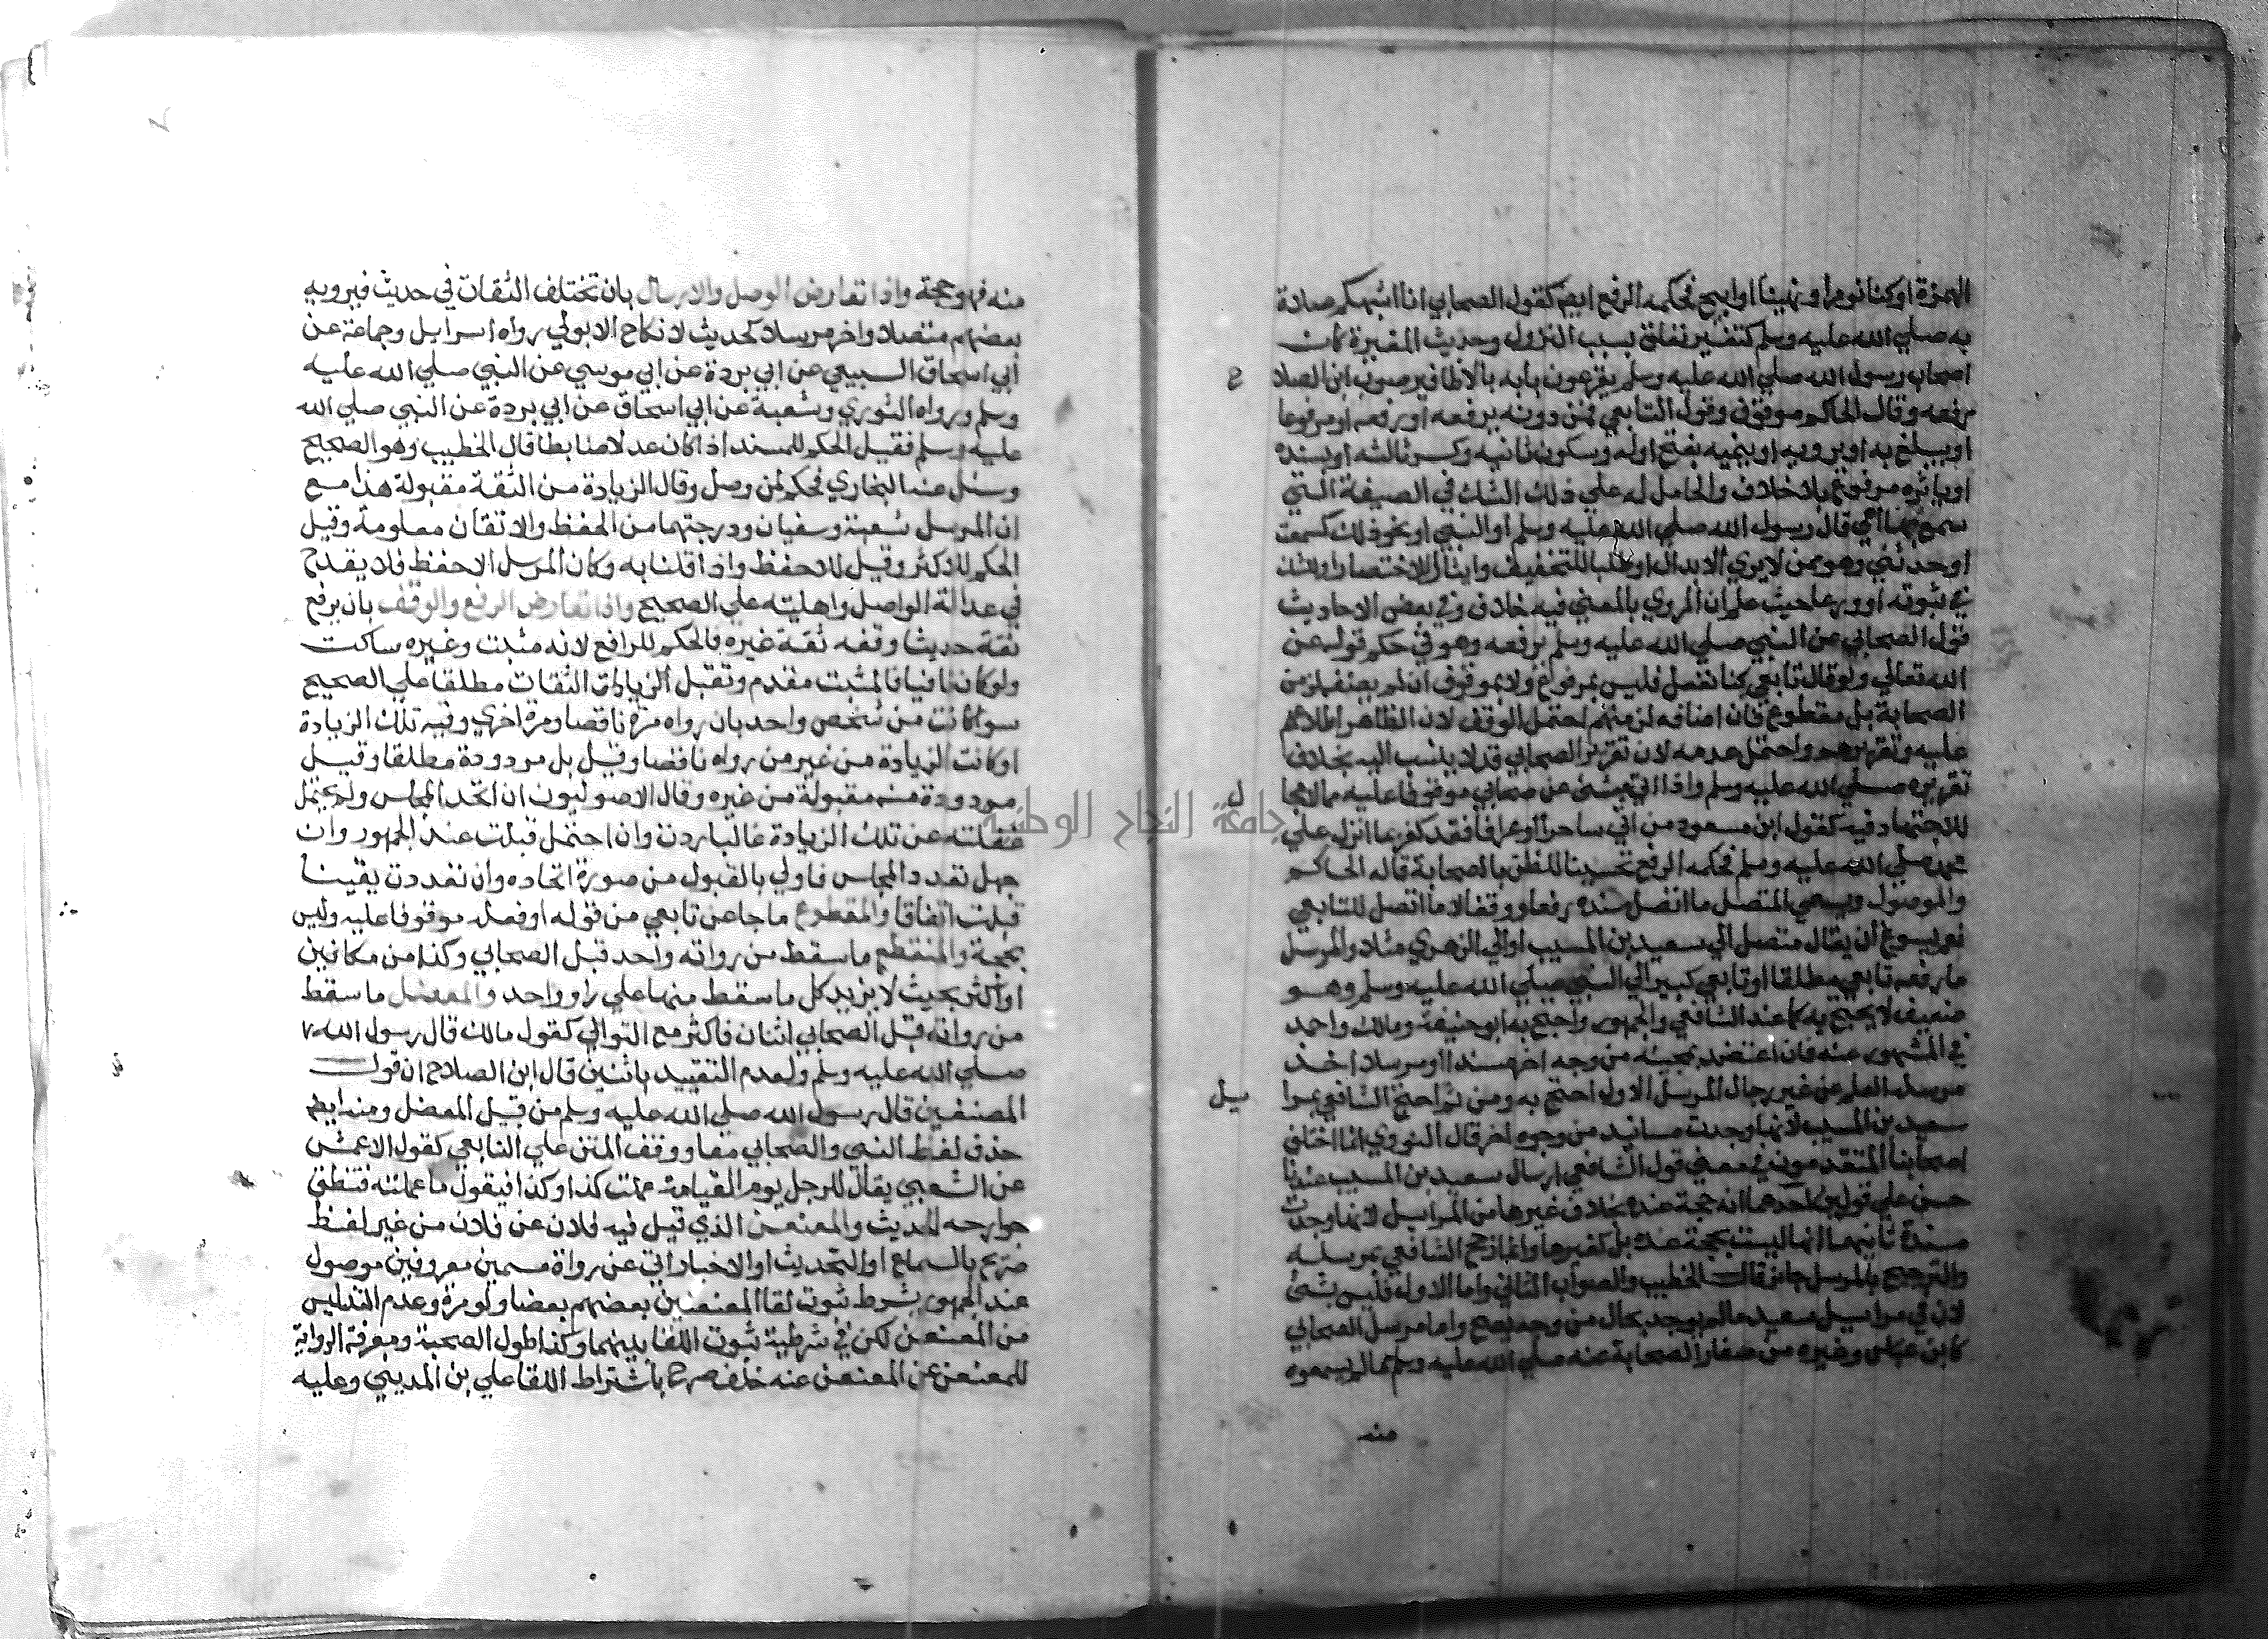 الهمزة او كنا نومر او نهينا او ابيح فحكمه الرفع ايضم كقول الصحابي انا اشبهكم صلاة
به صلي الله عليه وسلم كتفسير تعلق بسبب النزول وحديث المغيرة كان
اصحاب رسول الله صلي الله عليه وسلم يقرعون بابه بالاظافير صوب ابن الصلا
ح
رفعه وقال الحاكم موقوف وقول التابعي فمن دونه يرفعه او رفعه او مرفوعا
او يبلغ به او يرويه او ينميه بفتح اوله وسكون ثانيه وكسر ثالثه او يسنده
او ياثره مرفوع بلا خلاف والحامل له علي ذلك الشك في الصيغة التي
سمع بها اهي قال رسول الله صلي الله عليه وسلم او النبي او نحو ذلك كسمعت
او حدثني وهو ممن لا يري الابدال او طلبا للتخفيف وايثارا للاختصار او للشك
في ثبوته او ورعا حيث علم ان المروي بالمعني فيه خلاف وفي بعض الاحاديث
قول الصحابي عن النبي صلي الله عليه وسلم يرفعه وهو في حكم قوله عن
الله تعالي ولو قال تابعي كنا نفعل فليس بمرفوع ولا بموقوف ان لم يضفه لزمن
الصحابة بل مقطوع فان اضافه لزمنهم احتمل الوقف لان الظاهر اطلاعهم
عليه وتقريرهم واحتمل عدمه لان تقرير الصحابي قد لا ينسب اليه بخلاف
تقريره صلي الله عليه وسلم واذا اتي شئ عن صحابي موقوفا عليه مما لا مجا
ل
للاجتهاد فيه كقول ابن مسعود من اتي ساحرا او عرافا فقد كفر بما انزل علي
محمد صلي الله عليه وسلم فحكمه الرفع تحسينا للظن بالصحابة قاله الحاكم
والموصول ويسمي المتصل ما اتصل سنده رفعا ووقفا لا ما اتصل للتابعي
نعم يسوغ ان يقال متصل الي سعيد بن المسيب او الي الزهري مثلا والمرسل
ما رفعه تابعي مطلقا او تابعي كبير الي النبي صلي الله عليه وسلم وهو
ضعيف لا يحتج به كما عند الشافعي والجمهور واحتج به ابو حنيفة ومالك واحمد
في المشهور عنه فان اعتضد بمجيئه من وجه اخر مسندا او مرسلا اخذ
مرسله العلم عن غير رجال المرسل الاول احتج به ومن ثم احتج الشافعي بمرا
سيل
سعيد بن المسيب لانها وجدت مسانيد من وجوه اخر قال النووي انما اختلف
اصحابنا المتقدمون في معني قول الشافعي ارسال سعيد بن المسيب عندنا
حسن علي قولين احدهما انه حجة عنده بخلاف غيرها من المراسيل لانها وجدت
مسندة ثانيهما انها ليست بحجة عنده بل كغيرها وانما رجح الشافعي بمرسله
والترجيح بالمرسل جائز قال الخطيب والصواب الثاني واما الاول فليس بشئ
لان في مراسيل سعيد مالم يوجد بحال من وجه يصح واما مرسل الصحابي
كابن عباس وغيره من صغار الصحابة عنه صلي الله عليه وسلم مما لم يسمعوه
منه
٧
منه فهو حجة واذا تعارض الوصل والارسال بان تختلف الثقات في حديث فيرويه
بعضهم متصلا واخر مرسلا كحديث لا نكاح الا بولي رواه اسرايل وجماعة عن
ابي اسحاق السبيعي عن ابي بردة عن ابي موسي عن النبي صلي الله عليه
وسلم ورواه الثوري وشعبة عن ابي اسحاق عن ابي بردة عن النبي صلي الله
عليه وسلم فقيل الحكم للمسند اذا كان عدلا ضابطا قال الخطيب وهو الصحيح
وسئل عنه البخاري فحكم لمن وصل وقال الزيادة من الثقة مقبولة هذا مع
ان المرسل شعبة وسفيان ودرجتهما من الحفظ والاتقان معلومة وقيل
الحكم للاكثر وقيل للاحفظ واذا قلنا به وكان المرسل الاحفظ فلا يقدح
في عدالة الواصل واهليته علي الصحيح واذا تعارض الرفع والوقف بان يرفع
ثقة حديثا وقفه ثقة غيره فالحكم للرافع لانه مثبت وغيره ساكت
ولو كان نافيا فالمثبت مقدم وتقبل الزيادة الثقات مطلقا علي الصحيح
سوا كانت من شخص واحد بان رواه مرة ناقصا ومرة اخري وفيه تلك الزيادة
او كانت الزيادة من غير من رواه ناقصا وقيل بل مردودة مطلقا وقيل
مردودة منه مقبولة من غيره وقال الاصوليون ان اتحد المجلس ولم يحتمل
غفلته عن تلك الزيادة غالبا ردت وان احتمل قبلت عند الجمهور وان
جهل تعدد المجلس فاولي بالقبول من صورة اتحاده وان تعددت يقينا
قبلت اتفاقا والمقطوع ما جا عن تابعي من قوله او فعله موقوفا عليه وليس
بحجة والمنقطع ما سقط من رواته واحد قبل الصحابي وكذا من مكانين
او اكثر بحيث لا يزيد كل ما سقط منها علي راو واحد والمعضل ما سقط
من رواته قبل الصحابي اثنان فاكثر مع التوالي كقول مالك قال رسول الله
صلي الله عليه وسلم ولعدم التقييد باثنين قال ابن الصلاح ان قول
المصنفين قال رسول الله صلي الله عليه وسلم من قبيل المعضل ومنه ايضم
حذف لفظ النبي والصحابي معا ووقف المتن علي التابعي كقول الاعمش
عن الشعبي يقال للرجل يوم القيامة عملت كذا وكذا فيقول ما عملته فتنطق
جوارحه الحديث والمعنعن الذي قيل فيه فلان عن فلان من غير لفظ
صريح بالسماع او التحديث او الاخبار اتي عن رواة مسمين معروفين موصول
عند الجمهور بشرط ثبوت لقا المعنعنين بعضهم بعضا ولو مرة وعدم التدليس
من المعنعن لكن في شرطية ثبوت اللقا بينهما وكذا طول الصحبة ومعرفة الرواية
للمعنعن عن المعنعن عنه خلف صرح باشتراط اللقا علي بن المديني وعليه
جامعة النجاح الوطنية